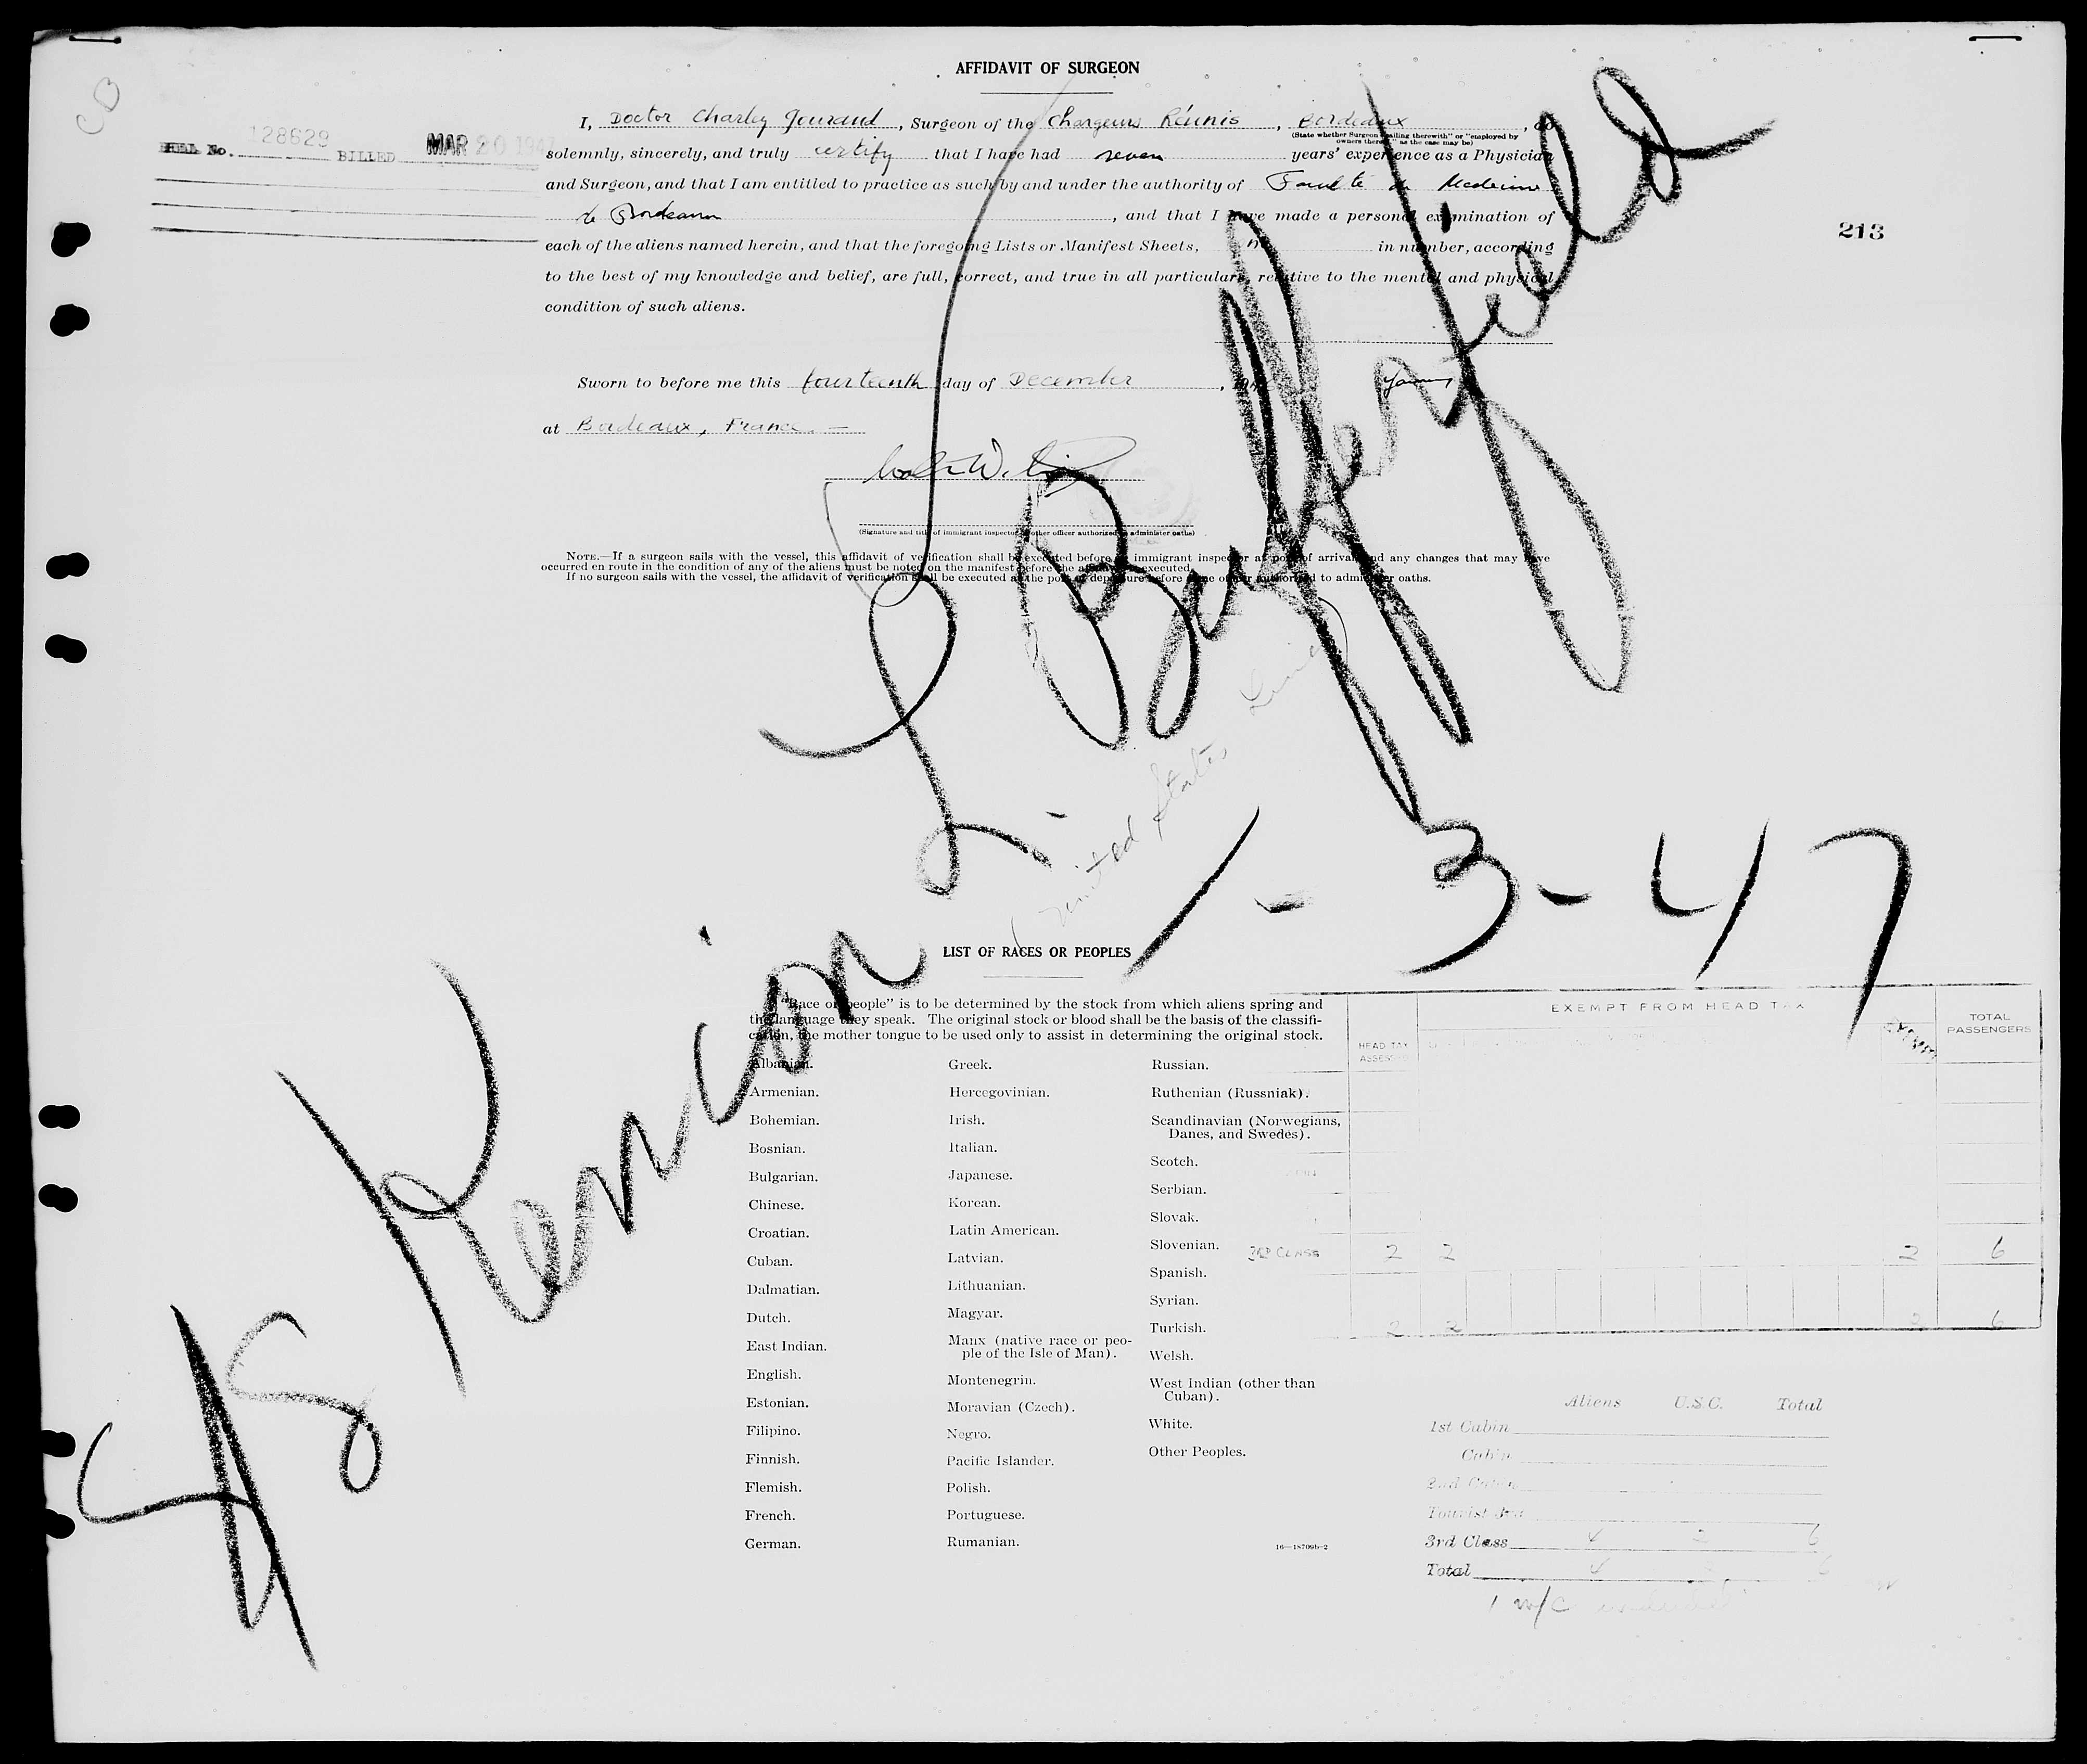 AFFIDAVIT OF SURGEON
CB
BILL No. 128629 BILLED MAR 20 1947
213
I, Doctor Charley Gouraud, Surgeon of the Chargeurs Réunis, Bordeaux, do
(State whether Surgeon "sailing therewith" or "employed by
owners thereof," as the case may be)
solemnly, sincerely, and truly certify that I have had seven years' experience as a Physician
and Surgeon, and that I am entitled to practice as such by and under the authority of Faculté de Medecine
de Bordeaux, and that I have made a personal examination of
each of the aliens named herein, and that the foregoing Lists or Manifest Sheets, in number, according
to the best of my knowledge and belief, are full, correct, and true in all particulars relative to the mental and physical
condition of such aliens.
Sworn to before me this fourteenth day of December, 194
at Bordeaux, France. —
(Signature and title of immigrant inspector or other officer authorized to administer oaths)
NOTE.—If a surgeon sails with the vessel, this affidavit of verification shall be executed before an immigrant inspector at port of arrival and any changes that may have
occurred en route in the condition of any of the aliens must be noted on the manifest before the affidavit is executed.
If no surgeon sails with the vessel, the affidavit of verification shall be executed at the port of departure before some officer authorized to administer oaths.
SS Kenicon L. Butterfield
(United States Lines)
1-3-47
LIST OF RACES OR PEOPLES
"Race or people" is to be determined by the stock from which aliens spring and
the language they speak. The original stock or blood shall be the basis of the classifi-
cation, the mother tongue to be used only to assist in determining the original stock.
Albanian.
Armenian.
Bohemian.
Bosnian.
Bulgarian.
Chinese.
Croatian.
Cuban.
Dalmatian.
Dutch.
East Indian.
English.
Estonian.
Filipino.
Finnish.
Flemish.
French.
German.
Greek.
Hercegovinian.
Irish.
Italian.
Japanese.
Korean.
Latin American.
Latvian.
Lithuanian.
Magyar.
Manx (native race or peo-
ple of the Isle of Man).
Montenegrin.
Moravian (Czech).
Negro.
Pacific Islander.
Polish.
Portuguese.
Rumanian.
Russian.
Ruthenian (Russniak).
Scandinavian (Norwegians,
Danes, and Swedes).
Scotch.
Serbian.
Slovak.
Slovenian.
Spanish.
Syrian.
Turkish.
Welsh.
West Indian (other than
Cuban).
White.
Other Peoples.
16—18709b-2
HEAD TAX
ASSESSED
EXEMPT FROM HEAD TAX
TOTAL
PASSENGERS
3RD CLASS 2 2 2 6
2 2 2 6
Aliens U.S.C. Total
1st Cabin
Cabin
2nd Cabin
Tourist 3rd
3rd Class 4 2 6
Total 4 6
1 w/c